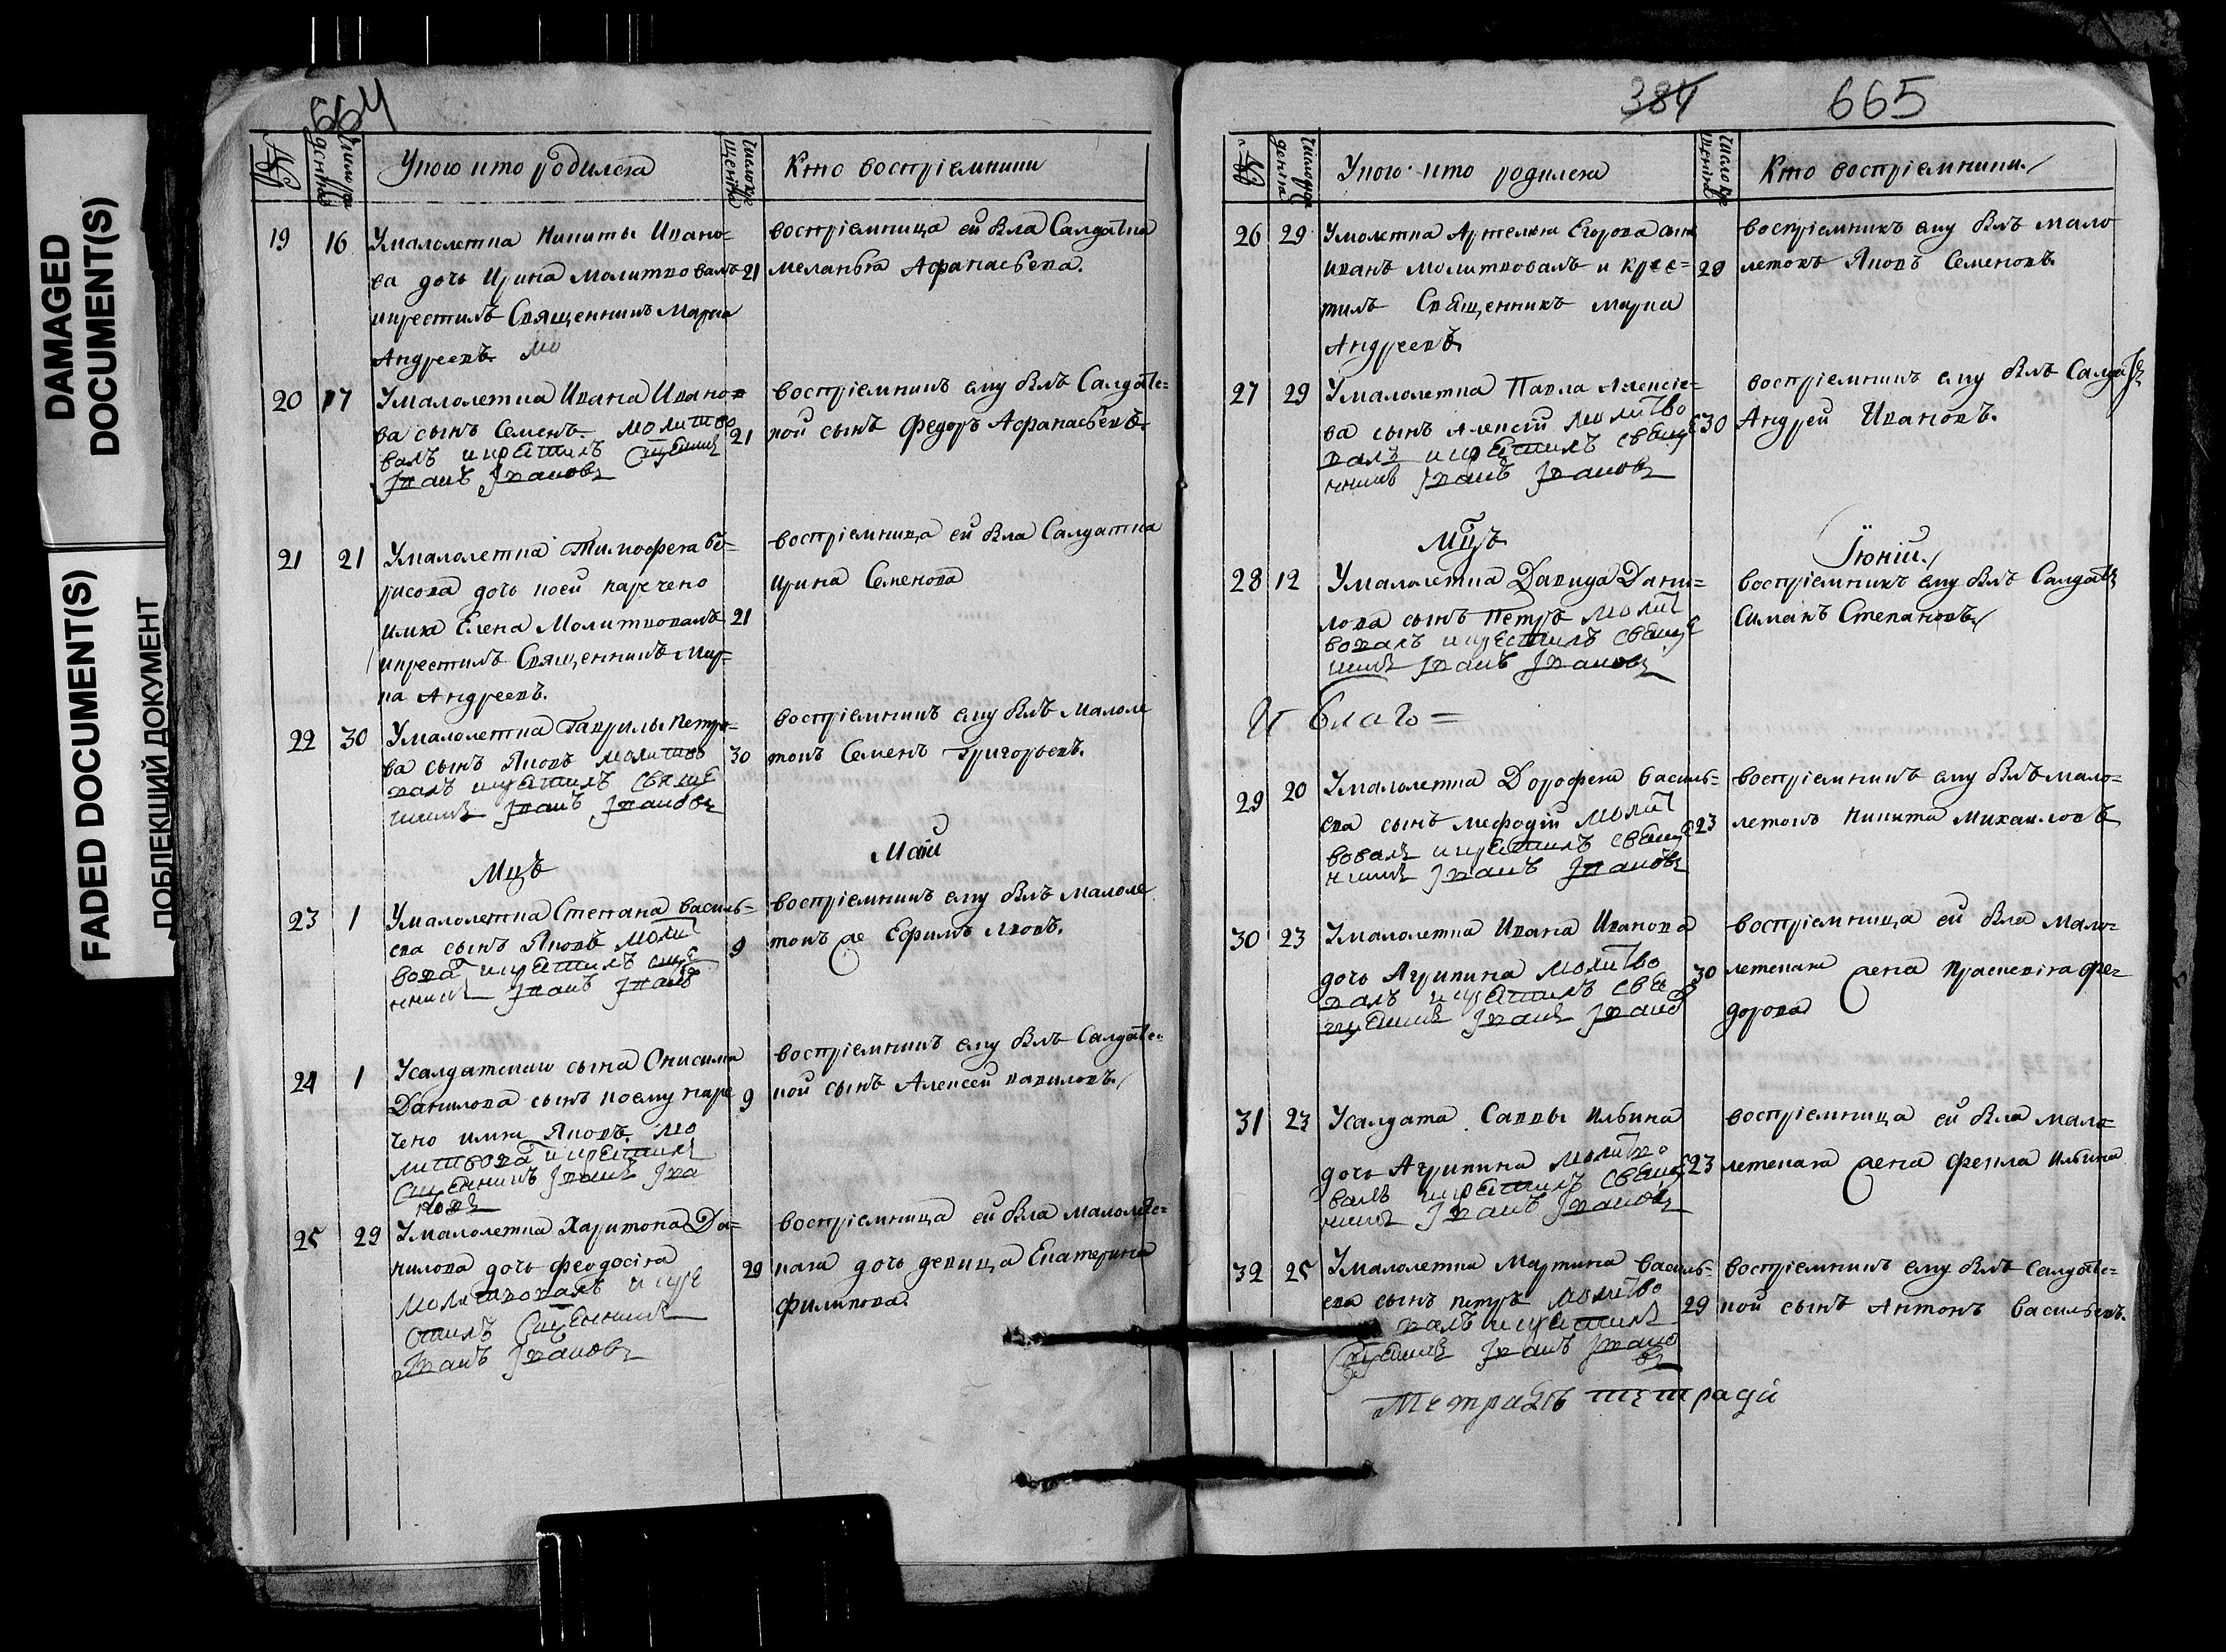 DAMAGED
DOCUMENT(S)
FADED DOCUMENT(S)
ПОБЛЕКШИЙ ДОКУМЕНТ
664
№
Число рождения
Укого кто родился
Число крещения
Кто восприемники
19 16 Умалолетка Никиты Ивано=
ва дочь Ирина молитвовалъ
икрестилъ Священникъ Марка
Андреевъ. мо
21
восприемница ей была Салдатка
меланья Афанасьева.
20 17 Умалолетка Ивана Ивано=
ва сынъ Семенъ. молитво
валъ икрестилъ Сщенникъ
Iванъ Iвановъ
21
восприемникъ ему былъ Салдатс=
кой сынъ Федоръ Афанасьевъ.
21 21 Умалолетка Тимофея бо=
рисова дочь коей наречено
имя Елена Молитвовалъ
икрестилъ Священникъ Мар=
ка Андреевъ.
21
восприемница ей была Салдатка
ирина Семенова
22 30 Умалолетка Гаврилы петро=
ва сынъ Яковъ молитво
валъ икрестилъ Свяще
нникъ Iванъ Iвановъ
30
восприемникъ ему былъ Малоле
токъ Семенъ Григорьевъ.
Мцъ Маiй
23 1 Умалолетка Степана василь=
ева сынъ Яковъ молит
вова икрестилъ сще
нникъ Iванъ Iванов
9
восприемникъ ему былъ малоле
токъ же Ефимъ Львовъ.
24 1 Усалдатскаго сына Онисима
Данилова сынъ коему наре
чено имя Яковъ. мо
литвова икрестилъ
Сщенникъ Iванъ Iва
новъ
9
восприемникъ ему былъ Салдатс=
кой сынъ Алексей вавиловъ.
25 29 Умалолетка Харитона Да=
нилова дочь феодосiя
молитвовалъ и кре
стилъ Сщенникъ
Iванъ Iвановъ
29
восприемница ей была малолетс=
кага дочь девица Екатерина
филипова.
384 665
№
Число рождения
Укого кто родился
Число крещения
Кто восприемники.
26 29 Умолетка Артемья Егорова сынъ
иванъ молитвовалъ и крес=
тилъ Священникъ марка
Андреевъ
29
восприемникъ ему былъ мало
летокъ Яковъ Семеновъ.
27 29 Умалолетка Павла Алексiе=
ва сынъ Алексiй молитво
валъ икрестилъ Свяще
нникъ Iванъ Iвановъ
30
восприемникъ ему былъ Салдатъ
Андрей Ивановъ.
Мцъ Iюнiй.
28 12 Умалолетка Давида Дани=
лова сынъ петръ молит
вовалъ икрестилъ Свяще
нникъ Iванъ Iвановъ
восприемникъ ему былъ Салдатъ
Симанъ Степановъ
благо=
29 20 Умалолетка Дорофея василь=
ева сынъ мефодiй молит
вовалъ икрестилъ Свяще
нникъ Iванъ Iвановъ
23
восприемникъ ему былъ мало=
летокъ Никита михаиловъ
30 23 Умалолетка Ивана Иванова
дочь Агрипина молитво
валъ икрестилъ Свя
щенникъ Iванъ Iвано
30
восприемница ей была мало=
летскага жена праскевiя фе=
дорова
31 23 Усалдата Саввы ильина
дочь Агрипина молитво
валъ икрестилъ Свяще
нникъ Iванъ Iвановъ
23
восприемница ей была мало=
летскага жена фекла ильина
32 25 Умалолетка Мартина василь=
ева сынъ петръ молитво
валъ икрестилъ
Сщенникъ Iванъ Iвано
въ
29
восприемникъ ему былъ салдатс=
кой сынъ Антонъ васильевъ.
тетради